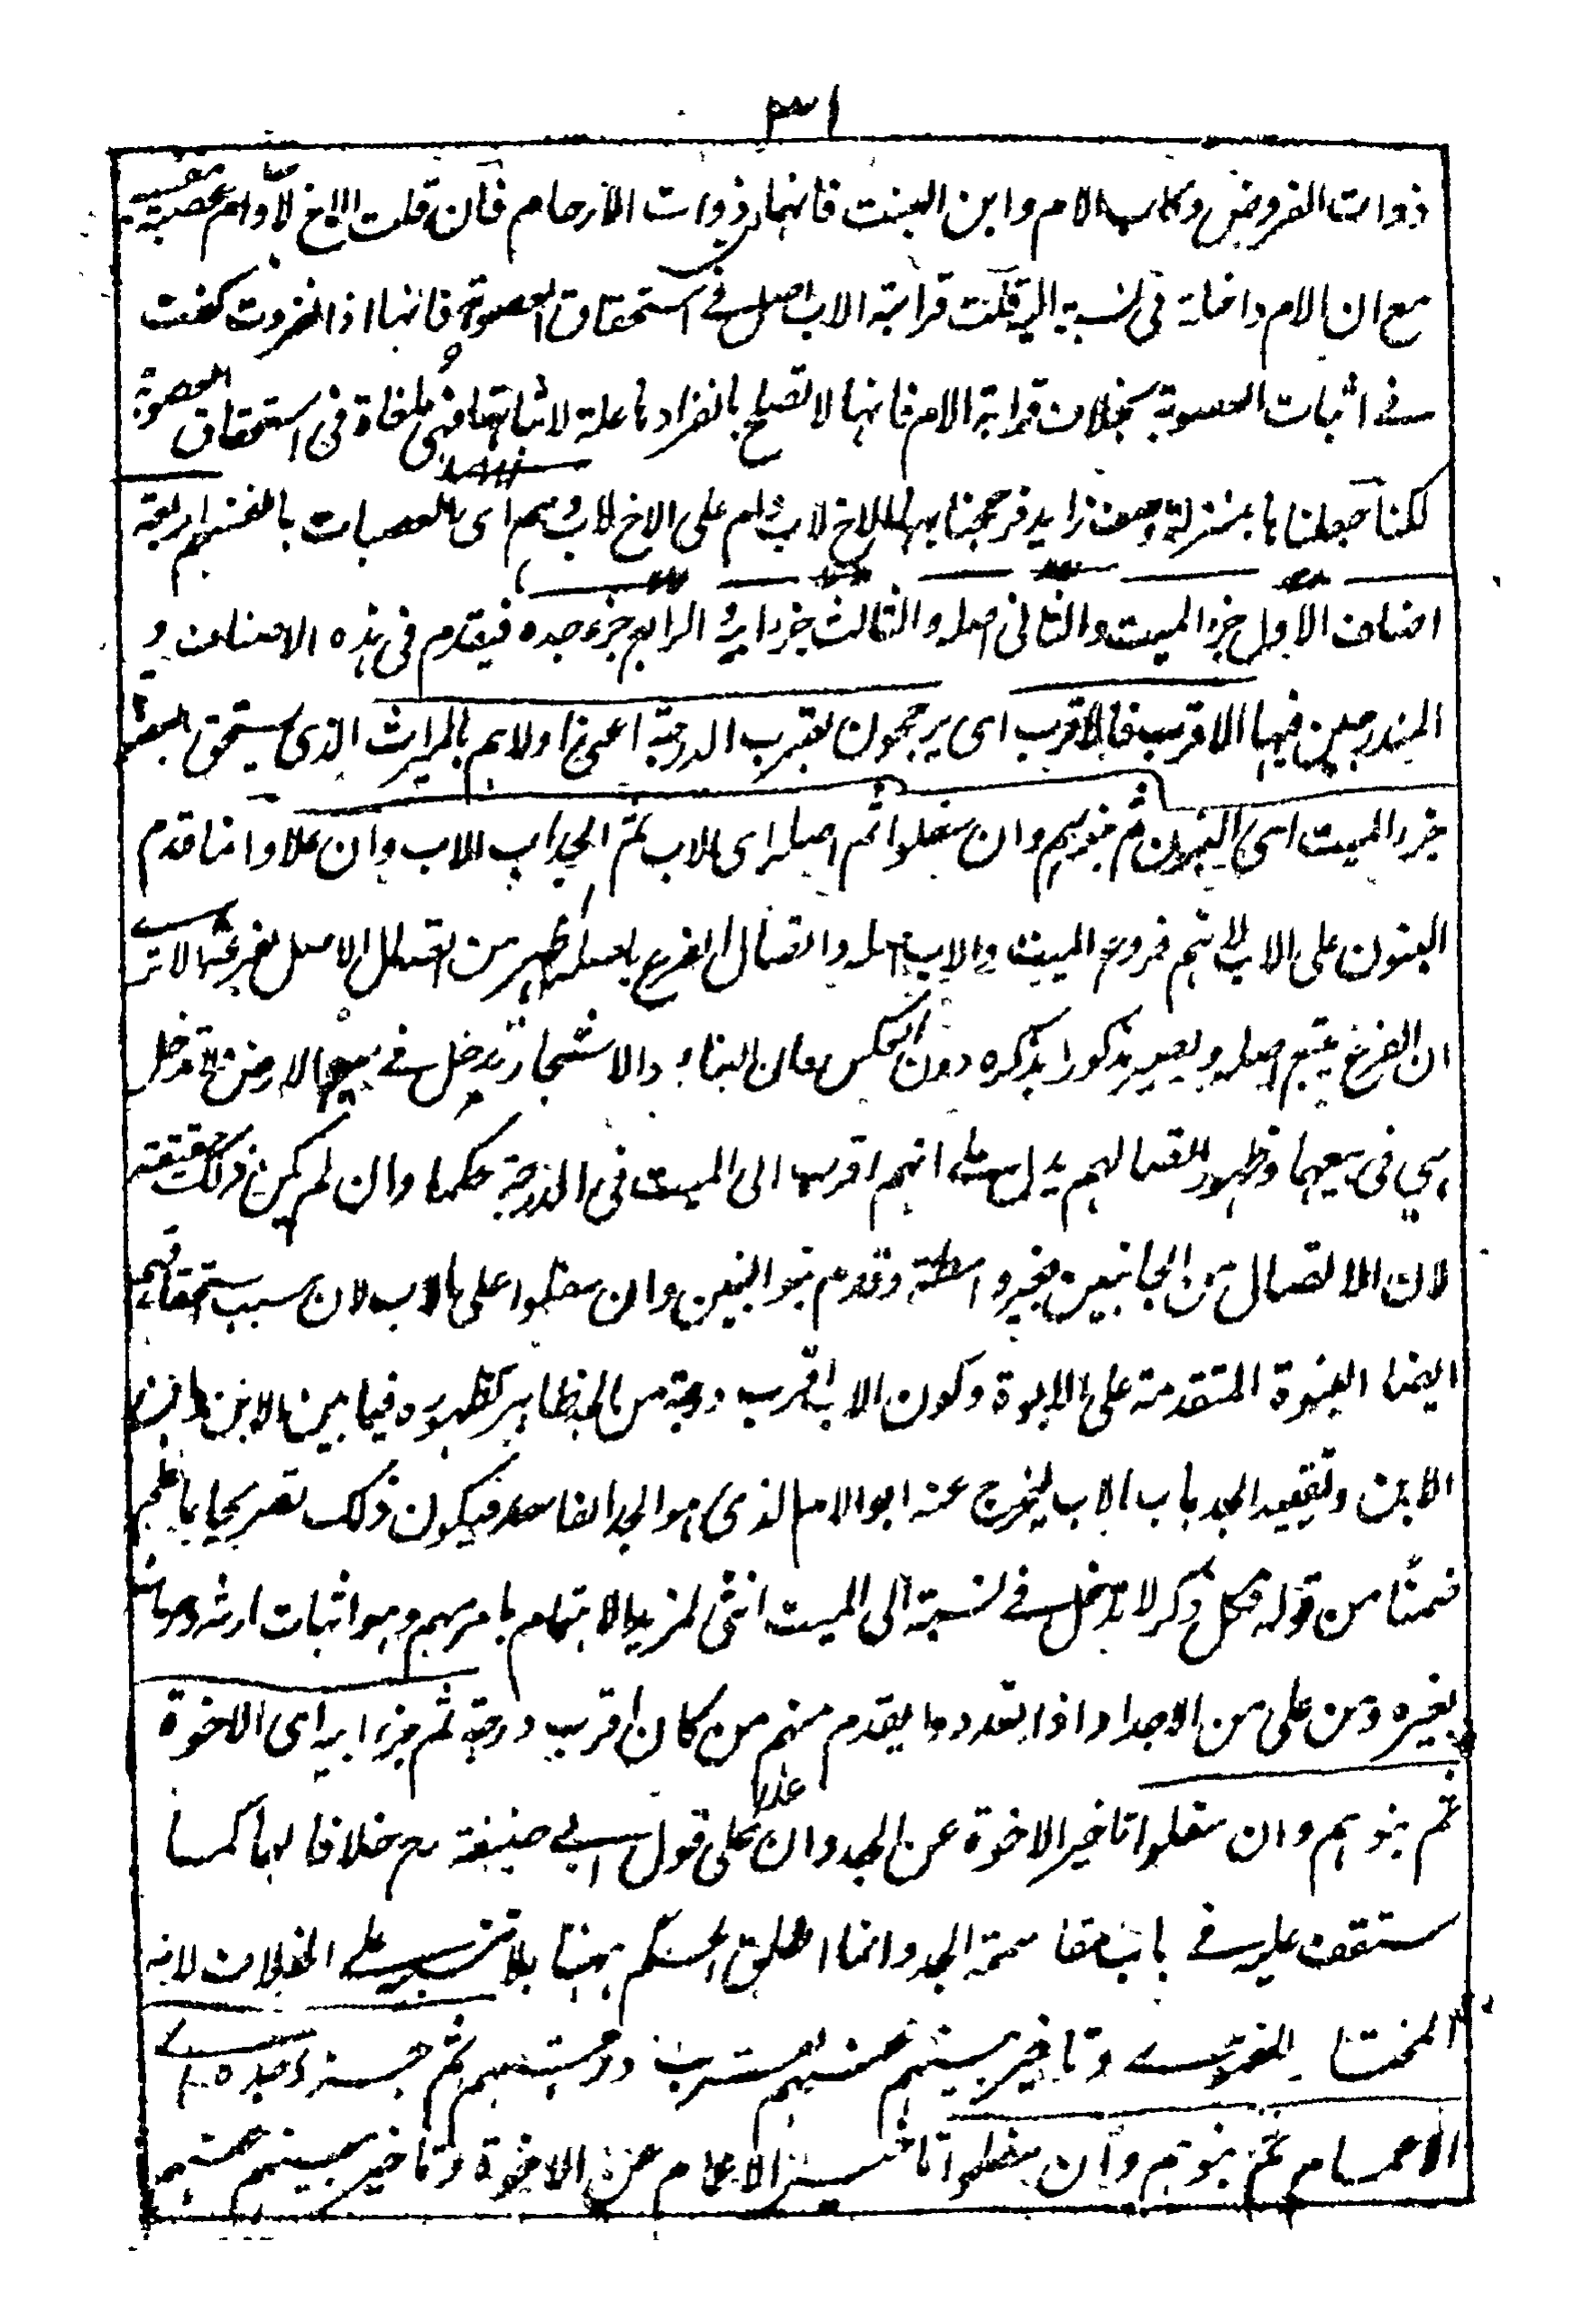 ٣١
ذوات الفروض وكاب الام وابن البنت فانهما من ذوات الارحام فان قلت الاخ لاب وام عصبة بنفسه
مع ان الام داخلة فى نسبته اليه قلت قرابة الاب اصل فى استحقاق العصوبة فانها اذا انفردت كفت
فى اثبات العصوبة بخلاف قرابة الام فانها لا تصلح بانفرادها علة لاثباتها فهى ملغاة فى استحقاق العصوبة
لكنا جعلناها بمنزلة وصف زايد فرجحنا بها الاخ لاب وام على الاخ لاب وهم اى العصبات بانفسهم اربعة
اصناف الاول جزء الميت والثانى اصله والثالث جزء ابيه والرابع جزء جده فيقدم فى هذه الاصناف و
المندرجين فيها الاقرب فالاقرب اى يرجحون بقرب الدرجة اعنى اولاهم بالميراث الذى يستحق بالعصوبة
جزء الميت اى البنون ثم بنوهم وان سفلوا ثم اصله اى الاب ثم الجد اب الاب وان علا وانما قدم
البنون على الاب لانهم فروع الميت والاب اصله واتصال الفرع باصله اظهر من اتصال الاصل بفرعه الا ترى
ان الفرع يتبع اصله ويصير مذكورا بذكره دون العكس فان البناء والاشجار تدخل فى بيع الارض ولا تدخل
هى فى بيعهما وظهور اتصالهم يدل على انهم اقرب الى الميت فى الدرجة حكما وان لم يكن ذلك حقيقة
لان الاتصال من الجانبين بغير واسطة وقدم بنو البنين وان سفلوا على الاب لان سبب استحقاقهم
ايضا البنوة المتقدمة على الابوة وكون الاب اقرب درجة من الجد ظاهر كظهوره فيما بين الابن وابن
الابن وتقييد الجد باب الاب ليخرج عنه ابو الام الذى هو الجد الفاسد فيكون ذلك تصريحا بما علم
ضمنا من قوله فكل ذكر لا تدخل فى نسبته الى الميت انثى لمزيد الاهتمام بامرهم وهو اثبات ارثه وحرمان
غيره ومن على من الاجداد اذا تعددوا يقدم منهم من كان اقرب درجة ثم جزء ابيه اى الاخوة
ثم بنوهم وان سفلوا تاخير الاخوة عن الجد وان علا على قول ابى حنيفة رح خلافا لهما كما
ستقف عليه فى باب مقاسمة الجد وانما اطلق الحكم ههنا بلا تنبيه على الخلاف لانه
المختار للفتوى وتاخير بنيهم عنهم لقرب درجتهم ثم جزء جده اى
الاعمام ثم بنوهم وان سفلوا تاخير الاعمام عن الاخوة وتاخير بنيهم عنهم